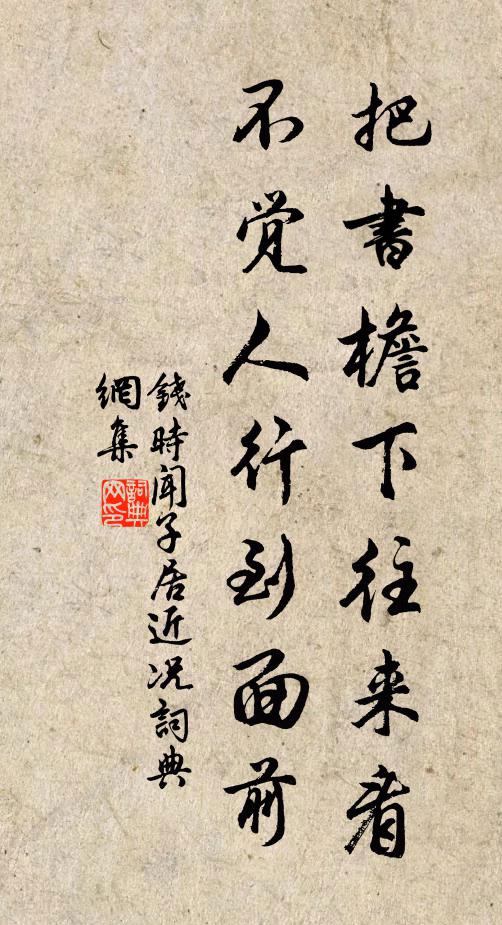 把書檐下往来看
不覚人行到面前
錢時闻子居近况詞典
網集
詞典
网印